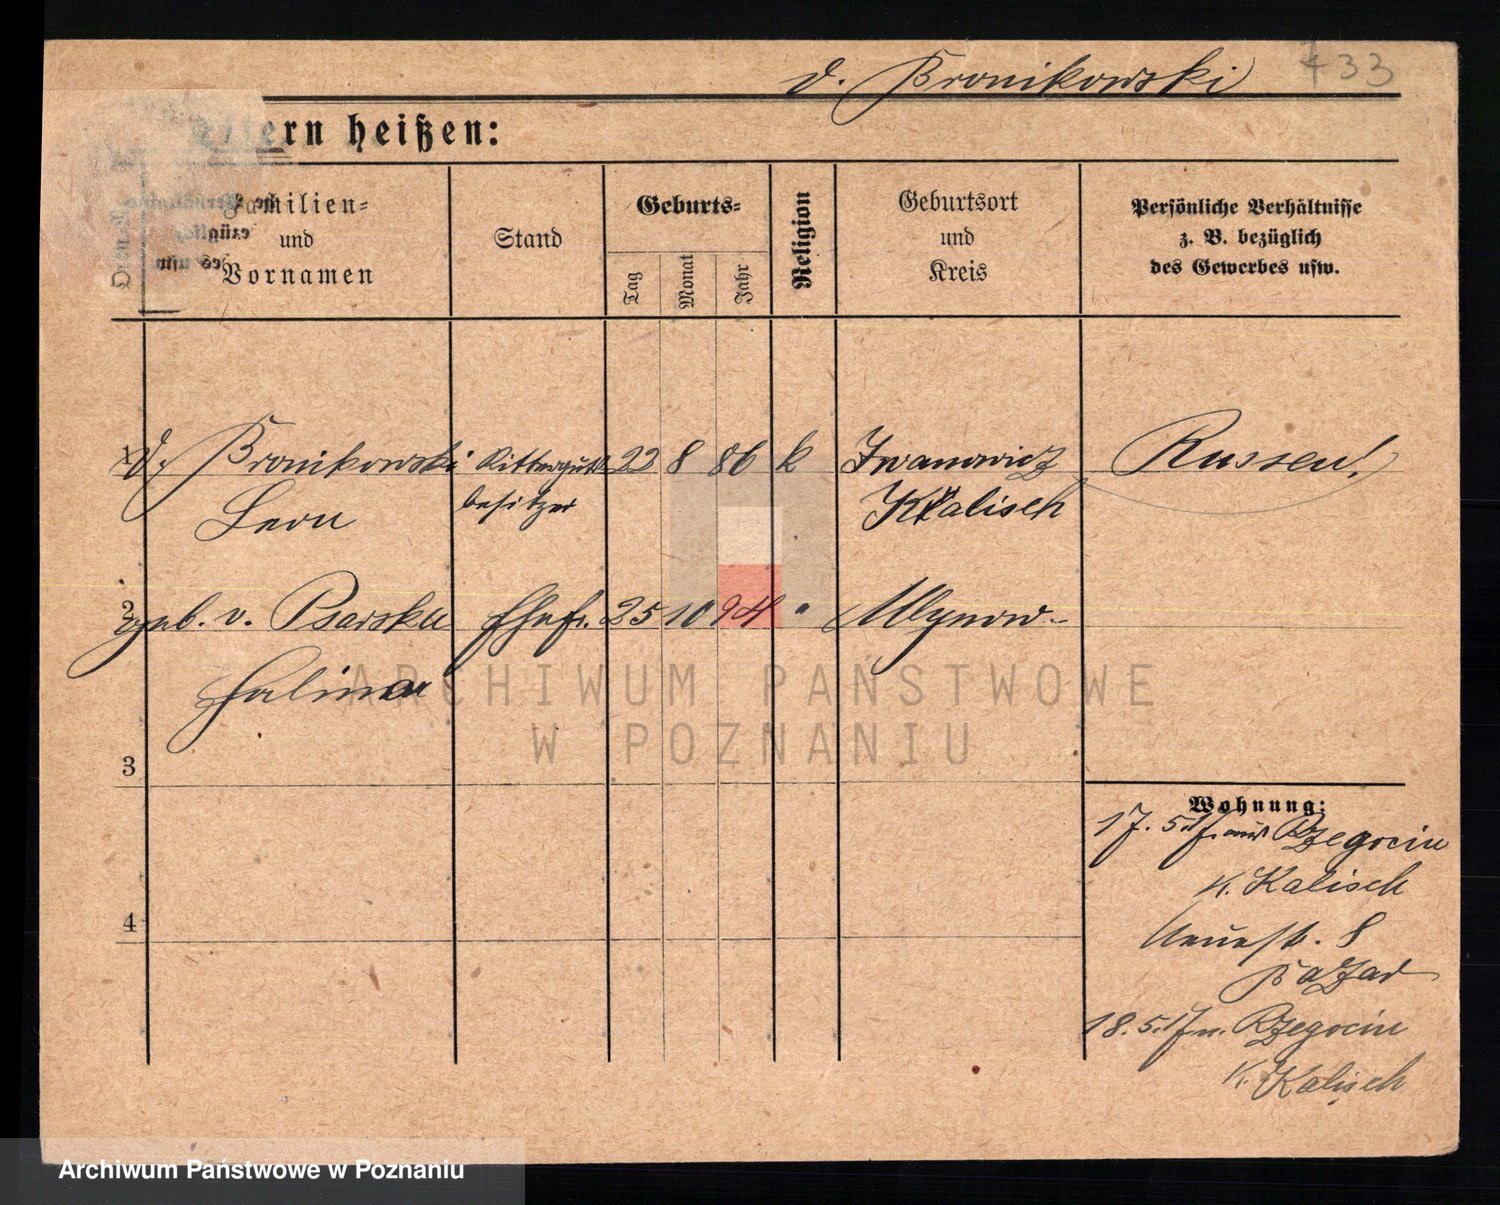 v. Bronikowski
733
Eltern heißen:
Familien-
und
Vornamen
Stand
Geburts-
Tag
Monat
Jahr
Religion
Geburtsort
und
Kreis
Persönliche Verhältnisse
z. B. bezüglich
des Gewerbes usw.
1 v. Bronikowski Ritterguts 22 8 86 k Iwanowicz Russen!
Leon besitzer Kalisch
2 geb. v. Psarska Ehefr. 25 10 94 " Mlynow
Halina
3
4
Wohnung:
17. 5. 17. aus Rzegocin
K. Kalisch
Neuestr. 8
Bazar
18. 5. 17 n. Rzegocin
K. Kalisch
ARCHIWUM PAŃSTWOWE
W POZNANIU
Archiwum Państwowe w Poznaniu